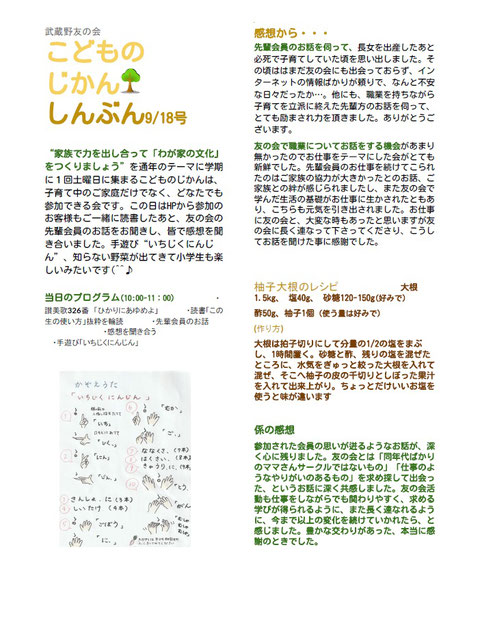 武蔵野友の会
こどもの
じかん
しんぶん9/18号
“家族で力を出し合って「わが家の文化」
をつくりましょう”を通年のテーマに学期
に１回土曜日に集まるこどものじかんは、
子育て中のご家庭だけでなく、どなたでも
参加できる会です。この日はHPから参加の
お客様もご一緒に読書したあと、友の会の
先輩会員のお話をお聞きし、皆で感想を聞
き合いました。手遊び“いちじくにんじ
ん”、知らない野菜が出てきて小学生も楽
しいみたいです(^^♪
当日のプログラム(10:00-11：00)　・
讃美歌326番「ひかりにあゆめよ」　・読書「この
生の使い方」抜粋を輪読　・先輩会員のお話
・感想を聞き合う
・手遊び「いちじくにんじん」
かぞえうた
「いちじく にんじん」
「いち
じく」
「にん
じん」
さんしょ、に
しいたけ
「ごぼう」
「に」
「むか
ご」
ななくさ、
はくさい、
きゅうり、に
感想から・・・
先輩会員のお話を伺って、長女を出産したあと
必死で子育てしていた頃を思い出しました。そ
の頃はまだ友の会にも出会っておらず、イン
ターネットの情報ばかりが頼りで、なんと不安
な日々だったか…。他にも、職業を持ちながら
子育てを立派に終えた先輩方のお話を伺って、
とても励まされ力を頂きました。ありがとうご
ざいます。
友の会で職業についてお話をする機会があまり
無かったのでお仕事をテーマにした会がとても
新鮮でした。先輩会員のお仕事を続けてこられ
たのはご家族の協力が大きかったとのお話、ご
家族との絆が感じられましたし、また友の会で
学んだ生活の基礎がお仕事に生かされたともあ
り、こちらも元気を引き出されました。お仕事
に友の会と、大変な時もあったと思いますが友
の会に長く連なって下さってくださり、こうし
てお話を聞けた事に感謝でした。
柚子大根のレシピ　大根
1.5kg、 塩40g、 砂糖120-150g(好みで)
酢50g、柚子1個（使う量は好みで）
(作り方)
大根は拍子切りにして分量の1/2の塩をまぶ
し、1時間置く。砂糖と酢、残りの塩を混ぜた
ところに、水気をぎゅっと絞った大根を入れて
混ぜ、そこへ柚子の皮の千切りとしぼった果汁
を入れて出来上がり。ちょっとだけいいお塩を
使うと味が違います
係の感想
参加された会員の思いが迸るようなお話が、深
く心に残りました。友の会とは「同年代ばかり
のママさんサークルではないもの」「仕事のよ
うなやりがいのあるもの」を求め探して出会っ
た、というお話に深く共感しました。友の会活
動も仕事をしながらでも関わりやすく、求める
学びが得られるように、また長く連なれるよう
に、今まで以上の変化を続けていかれたら、と
感じました。豊かな交わりがあった、本当に感
謝のときでした。